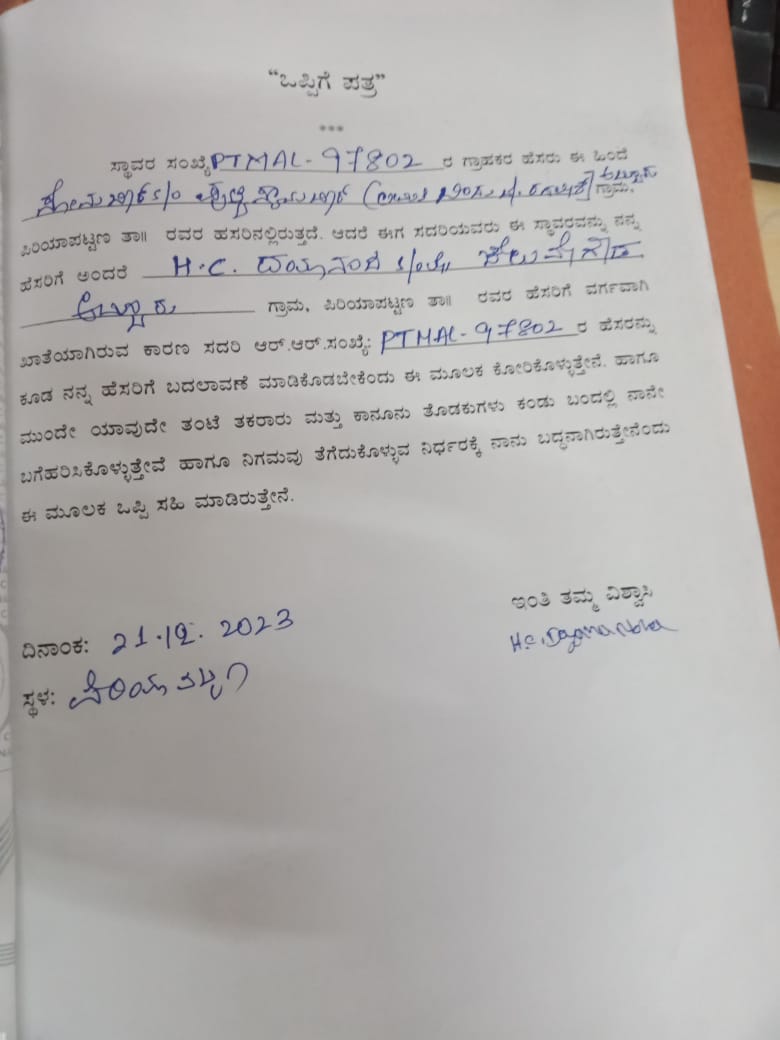 “ಒಪ್ಪಿಗೆ ಪತ್ರ”
***
ಸ್ಥಾವರ ಸಂಖ್ಯೆ PTMAL-97802 ರ ಗ್ರಾಹಕರ ಹೆಸರು ಈ ಹಿಂದೆ
S/O ಗ್ರಾಮ,
ಪಿರಿಯಾಪಟ್ಟಣ ತಾ॥ ರವರ ಹಸರಿನಲ್ಲಿರುತ್ತದೆ. ಆದರೆ ಈಗ ಸದರಿಯವರು ಈ ಸ್ಥಾವರವನ್ನು ನನ್ನ
ಹೆಸರಿಗೆ ಅಂದರೆ H.C. ದಯಾನಂದ S/o
ಗ್ರಾಮ, ಪಿರಿಯಾಪಟ್ಟಣ ತಾ॥ ರವರ ಹೆಸರಿಗೆ ವರ್ಗವಾಗಿ
ಖಾತೆಯಾಗಿರುವ ಕಾರಣ ಸದರಿ ಆರ್.ಆರ್.ಸಂಖ್ಯೆ: PTMAL-97802 ರ ಹೆಸರನ್ನು
ಕೂಡ ನನ್ನ ಹೆಸರಿಗೆ ಬದಲಾವಣೆ ಮಾಡಿಕೊಡಬೇಕೆಂದು ಈ ಮೂಲಕ ಕೋರಿಕೊಳ್ಳುತ್ತೇನೆ. ಹಾಗೂ
ಮುಂದೇ ಯಾವುದೇ ತಂಟೆ ತಕರಾರು ಮತ್ತು ಕಾನೂನು ತೊಡಕುಗಳು ಕಂಡು ಬಂದಲ್ಲಿ ನಾನೇ
ಬಗೆಹರಿಸಿಕೊಳ್ಳುತ್ತೇವೆ ಹಾಗೂ ನಿಗಮವು ತೆಗೆದುಕೊಳ್ಳುವ ನಿರ್ಧರಕ್ಕೆ ನಾನು ಬದ್ಧನಾಗಿರುತ್ತೇನೆಂದು
ಈ ಮೂಲಕ ಒಪ್ಪಿ ಸಹಿ ಮಾಡಿರುತ್ತೇನೆ.
ಇಂತಿ ತಮ್ಮ ವಿಶ್ವಾಸಿ
H.C. Dayananda
ದಿನಾಂಕ: 21.12.2023
ಸ್ಥಳ: